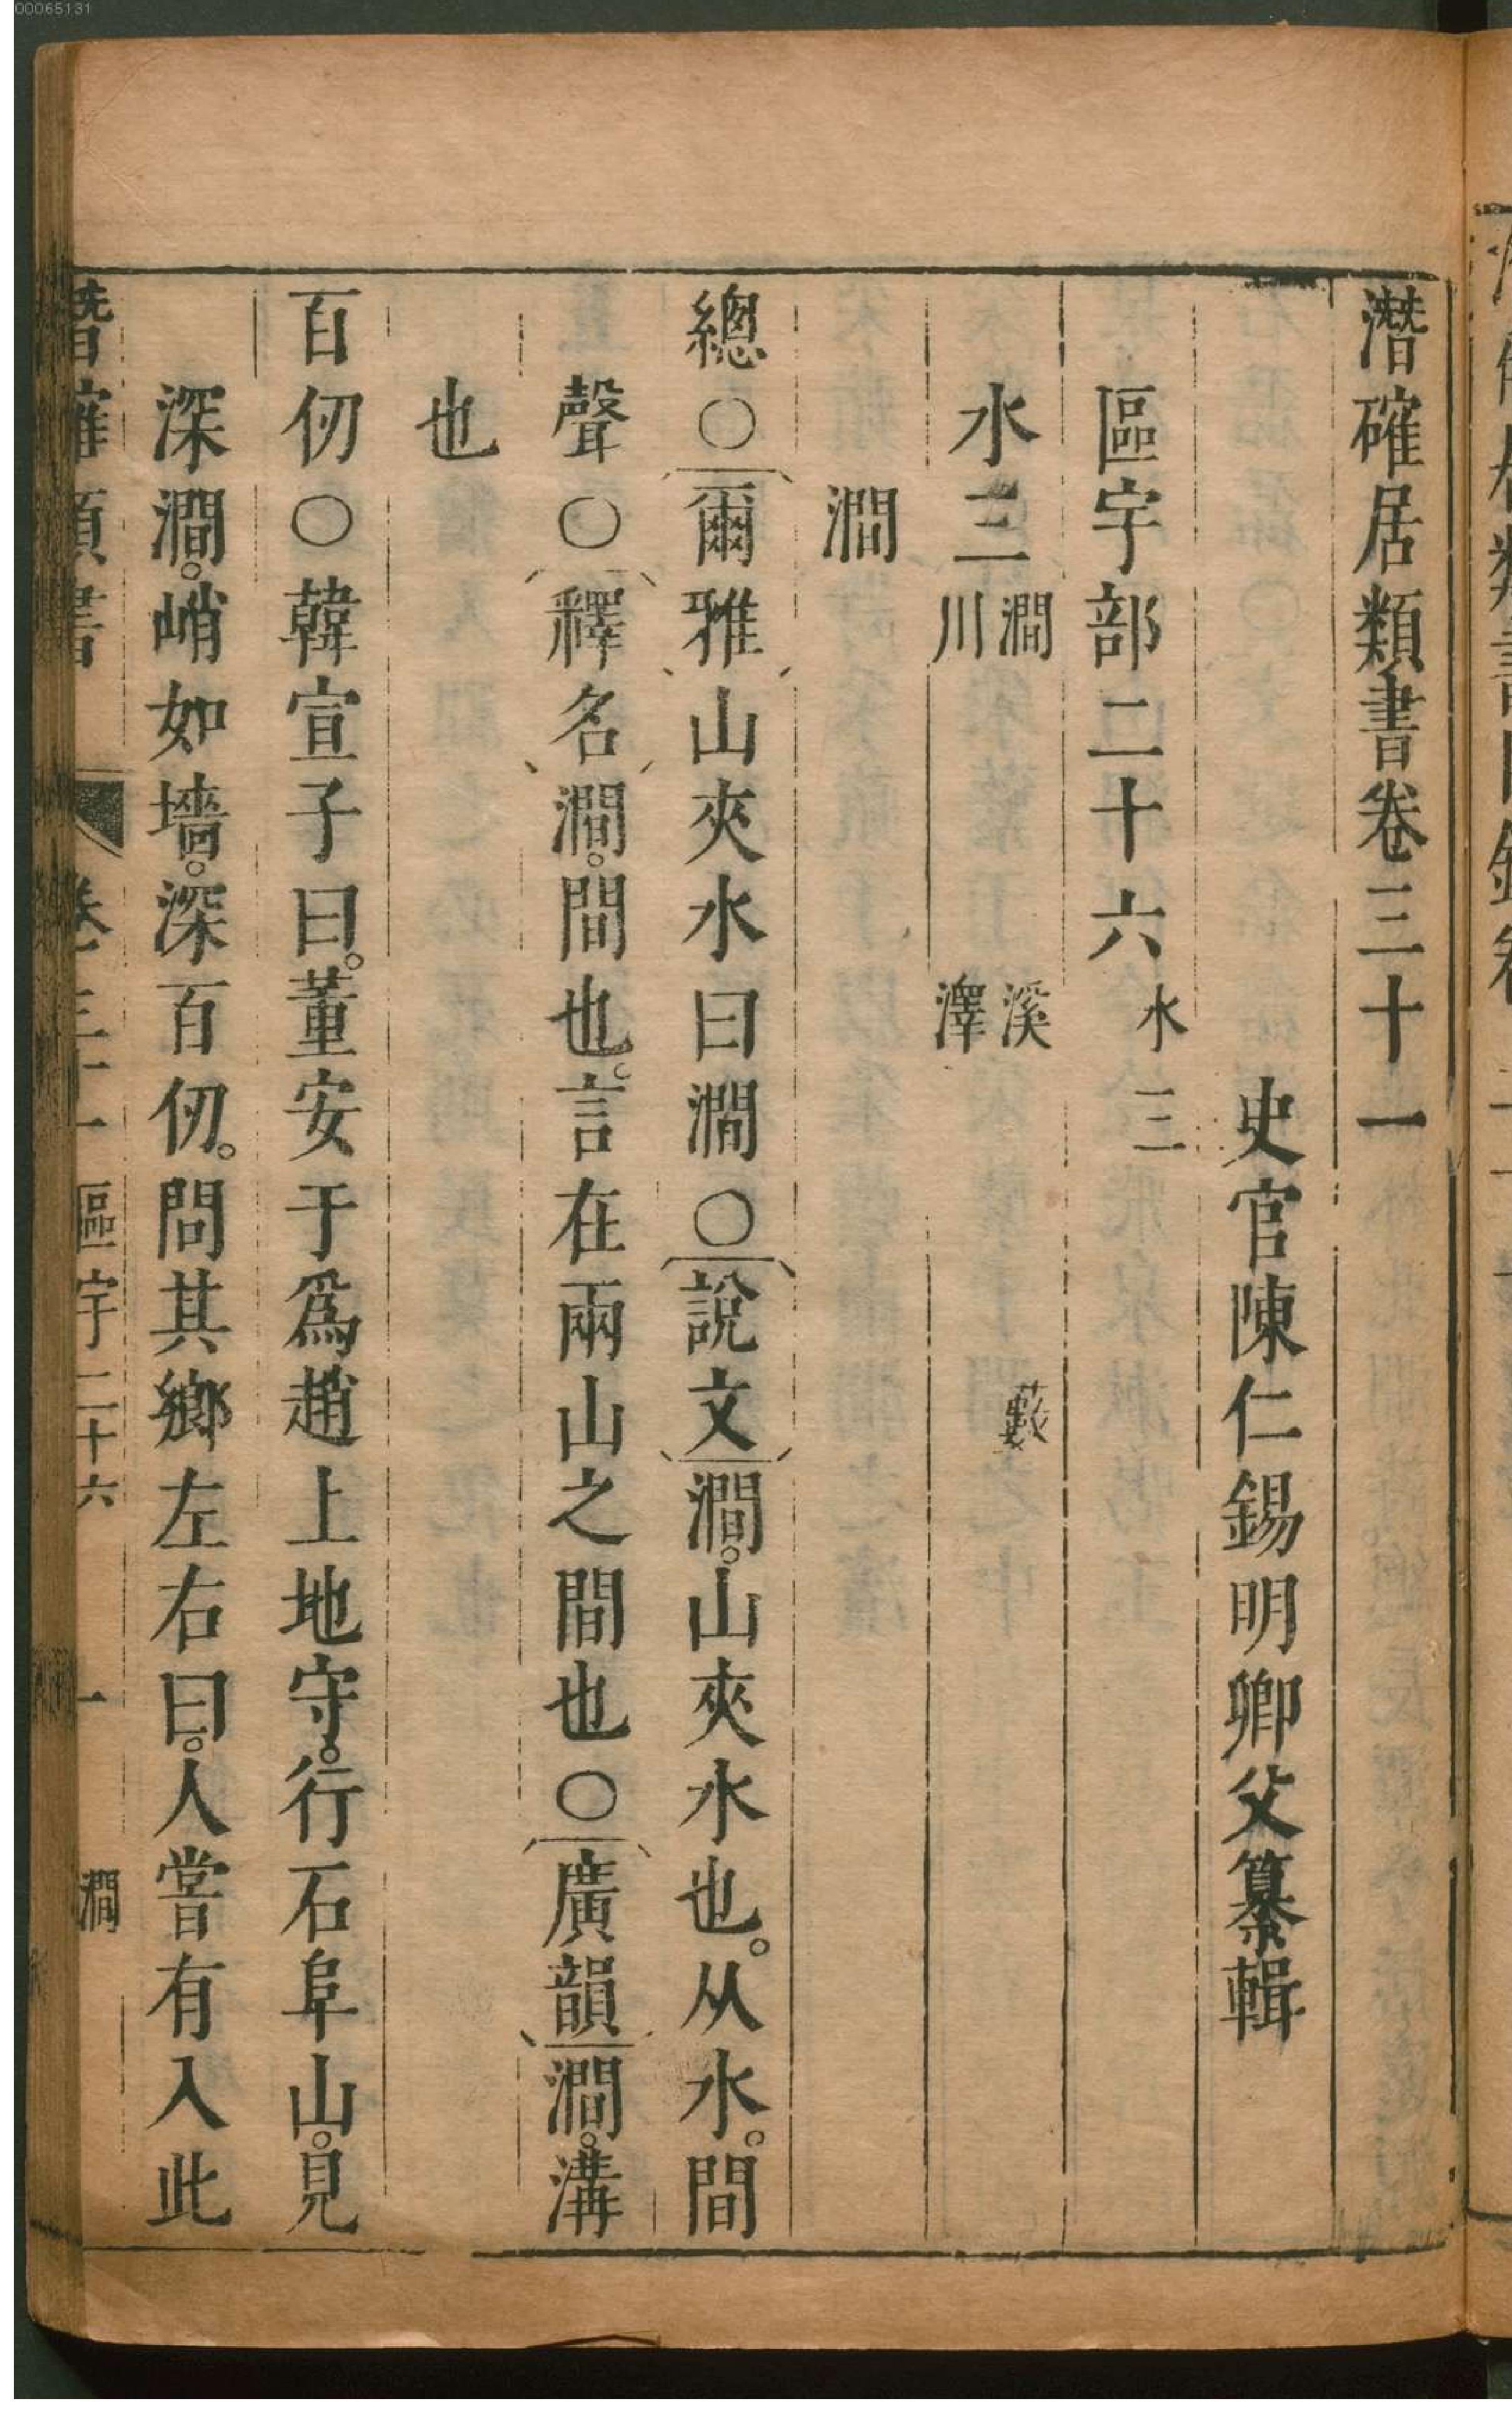 00065131
潛確居類書卷三十一
史官陳仁錫明卿父纂輯
區宇部二十六 水三
水三 澗 溪 藪
川 澤
澗
總○爾雅山夾水曰澗○說文澗。山夾水也。从水。間
聲○釋名澗。間也。言在兩山之間也○廣韻澗。溝
也
百仞○韓宣子曰。董安于爲趙上地守。行石阜山。見
深澗。峭如墻。深百仞。問其鄉左右曰。人嘗有入此
潛確類書 卷三十一 區宇二十六 一 澗